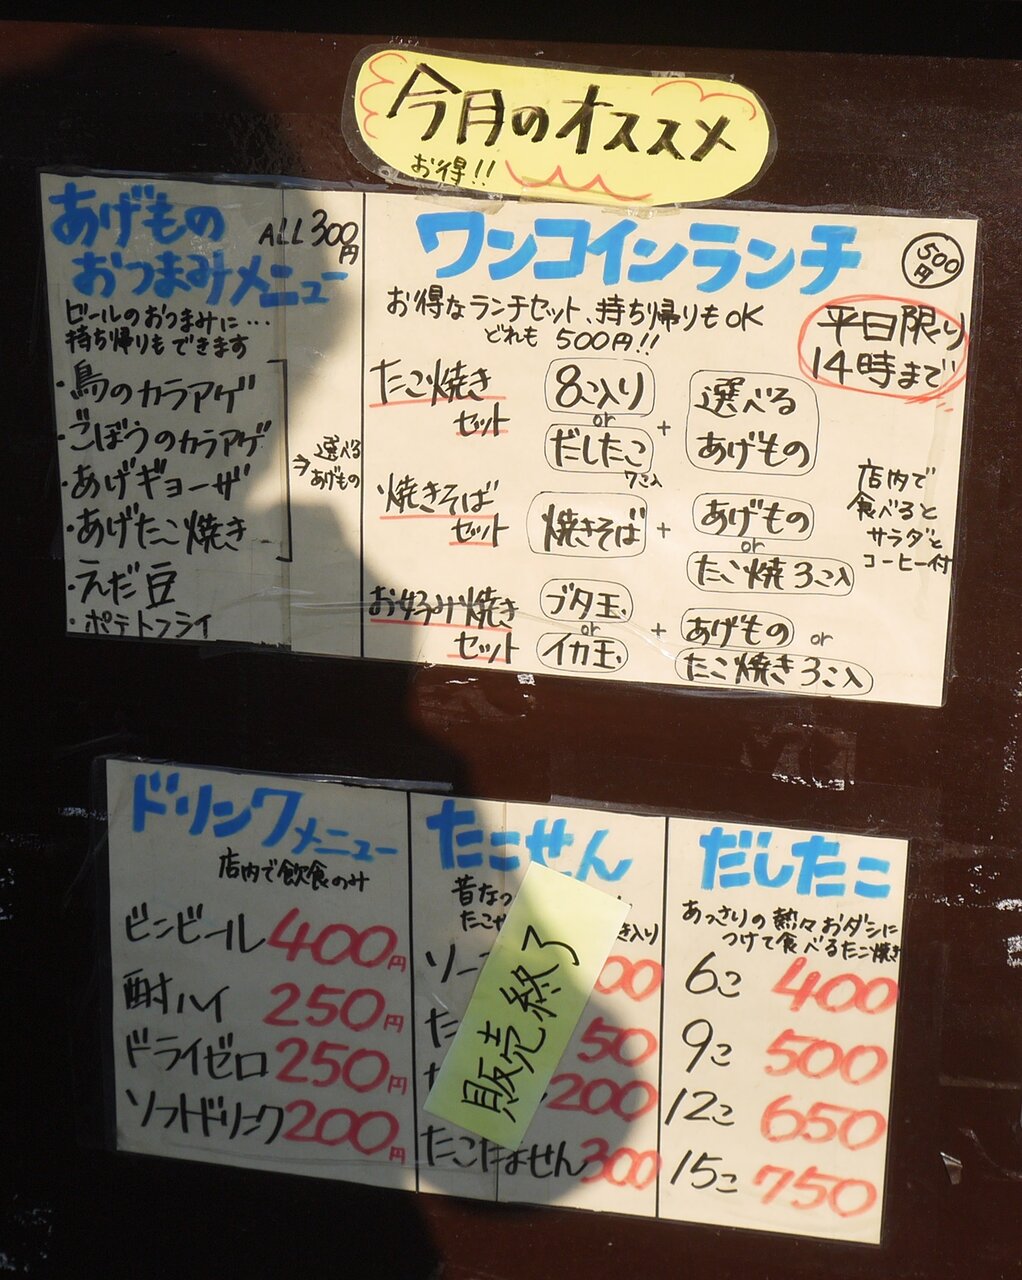 今月のオススメ
お得!!
あげもの
おつまみメニュー
ALL300円
ビールのおつまみに…
持ち帰りもできます
・鳥のカラアゲ
・ごぼうのカラアゲ
・あげギョーザ
・あげたこ焼き
・えだ豆
・ポテトフライ
選べる
あげもの
ワンコインランチ
500円
お得なランチセット、持ち帰りもOK
どれも 500円!!
平日限り
14時まで
たこ焼き
セット
8コ入り
or
だしたこ
7コ入
+
選べる
あげもの
焼きそば
セット
焼きそば
+
あげもの
or
たこ焼3コ入
お好み焼き
セット
ブタ玉
or
イカ玉
+
あげもの or
たこ焼き3コ入
店内で
食べると
サラダと
コーヒー付
ドリンクメニュー
店内で飲食のみ
ビンビール400円
酎ハイ 250円
ドライゼロ250円
ソフトドリンク200円
たこせん
昔なつ
たこせ
き入り
ソー
00
た
50
200
たこたません300
販売終了
だしたこ
あっさりの熱々おダシに
つけて食べるたこ焼き
6コ 400
9コ 500
12コ 650
15コ 750